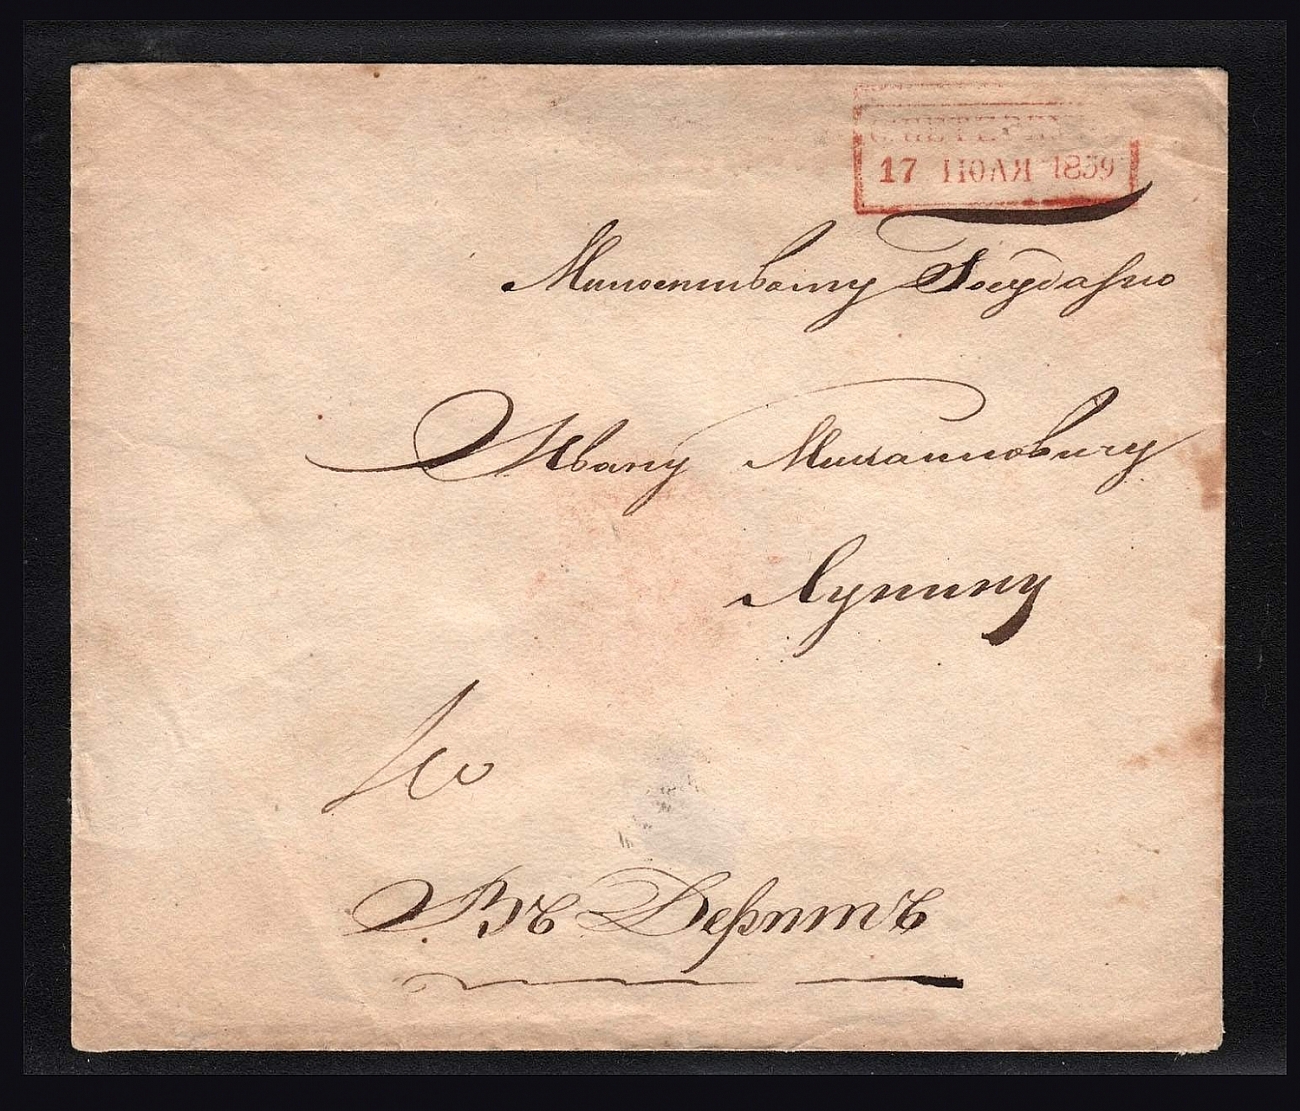 С.ПЕТЕРБУРГЪ
17 ІЮЛЯ 1859
Милостивому Государю
Ивану Михаиловичу
Лунину
Въ Дерптъ